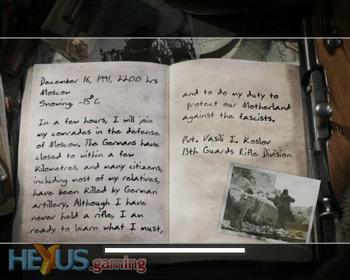 December 16, 1941, 2200 hrs
Moscow
Snowing, -15°C
In a few hours, I will join
my comrades in the defense
of Moscow. The Germans have
closed to within a few
kilometres, and many citizens,
including most of my relatives,
have been killed by German
artillery. Although I have
never held a rifle, I am
ready to learn what I must,
and to do my duty to
protect our Motherland
against the fascists.
Pvt. Vasili I. Koslov
13th Guards Rifle Division
HEXUS.gaming